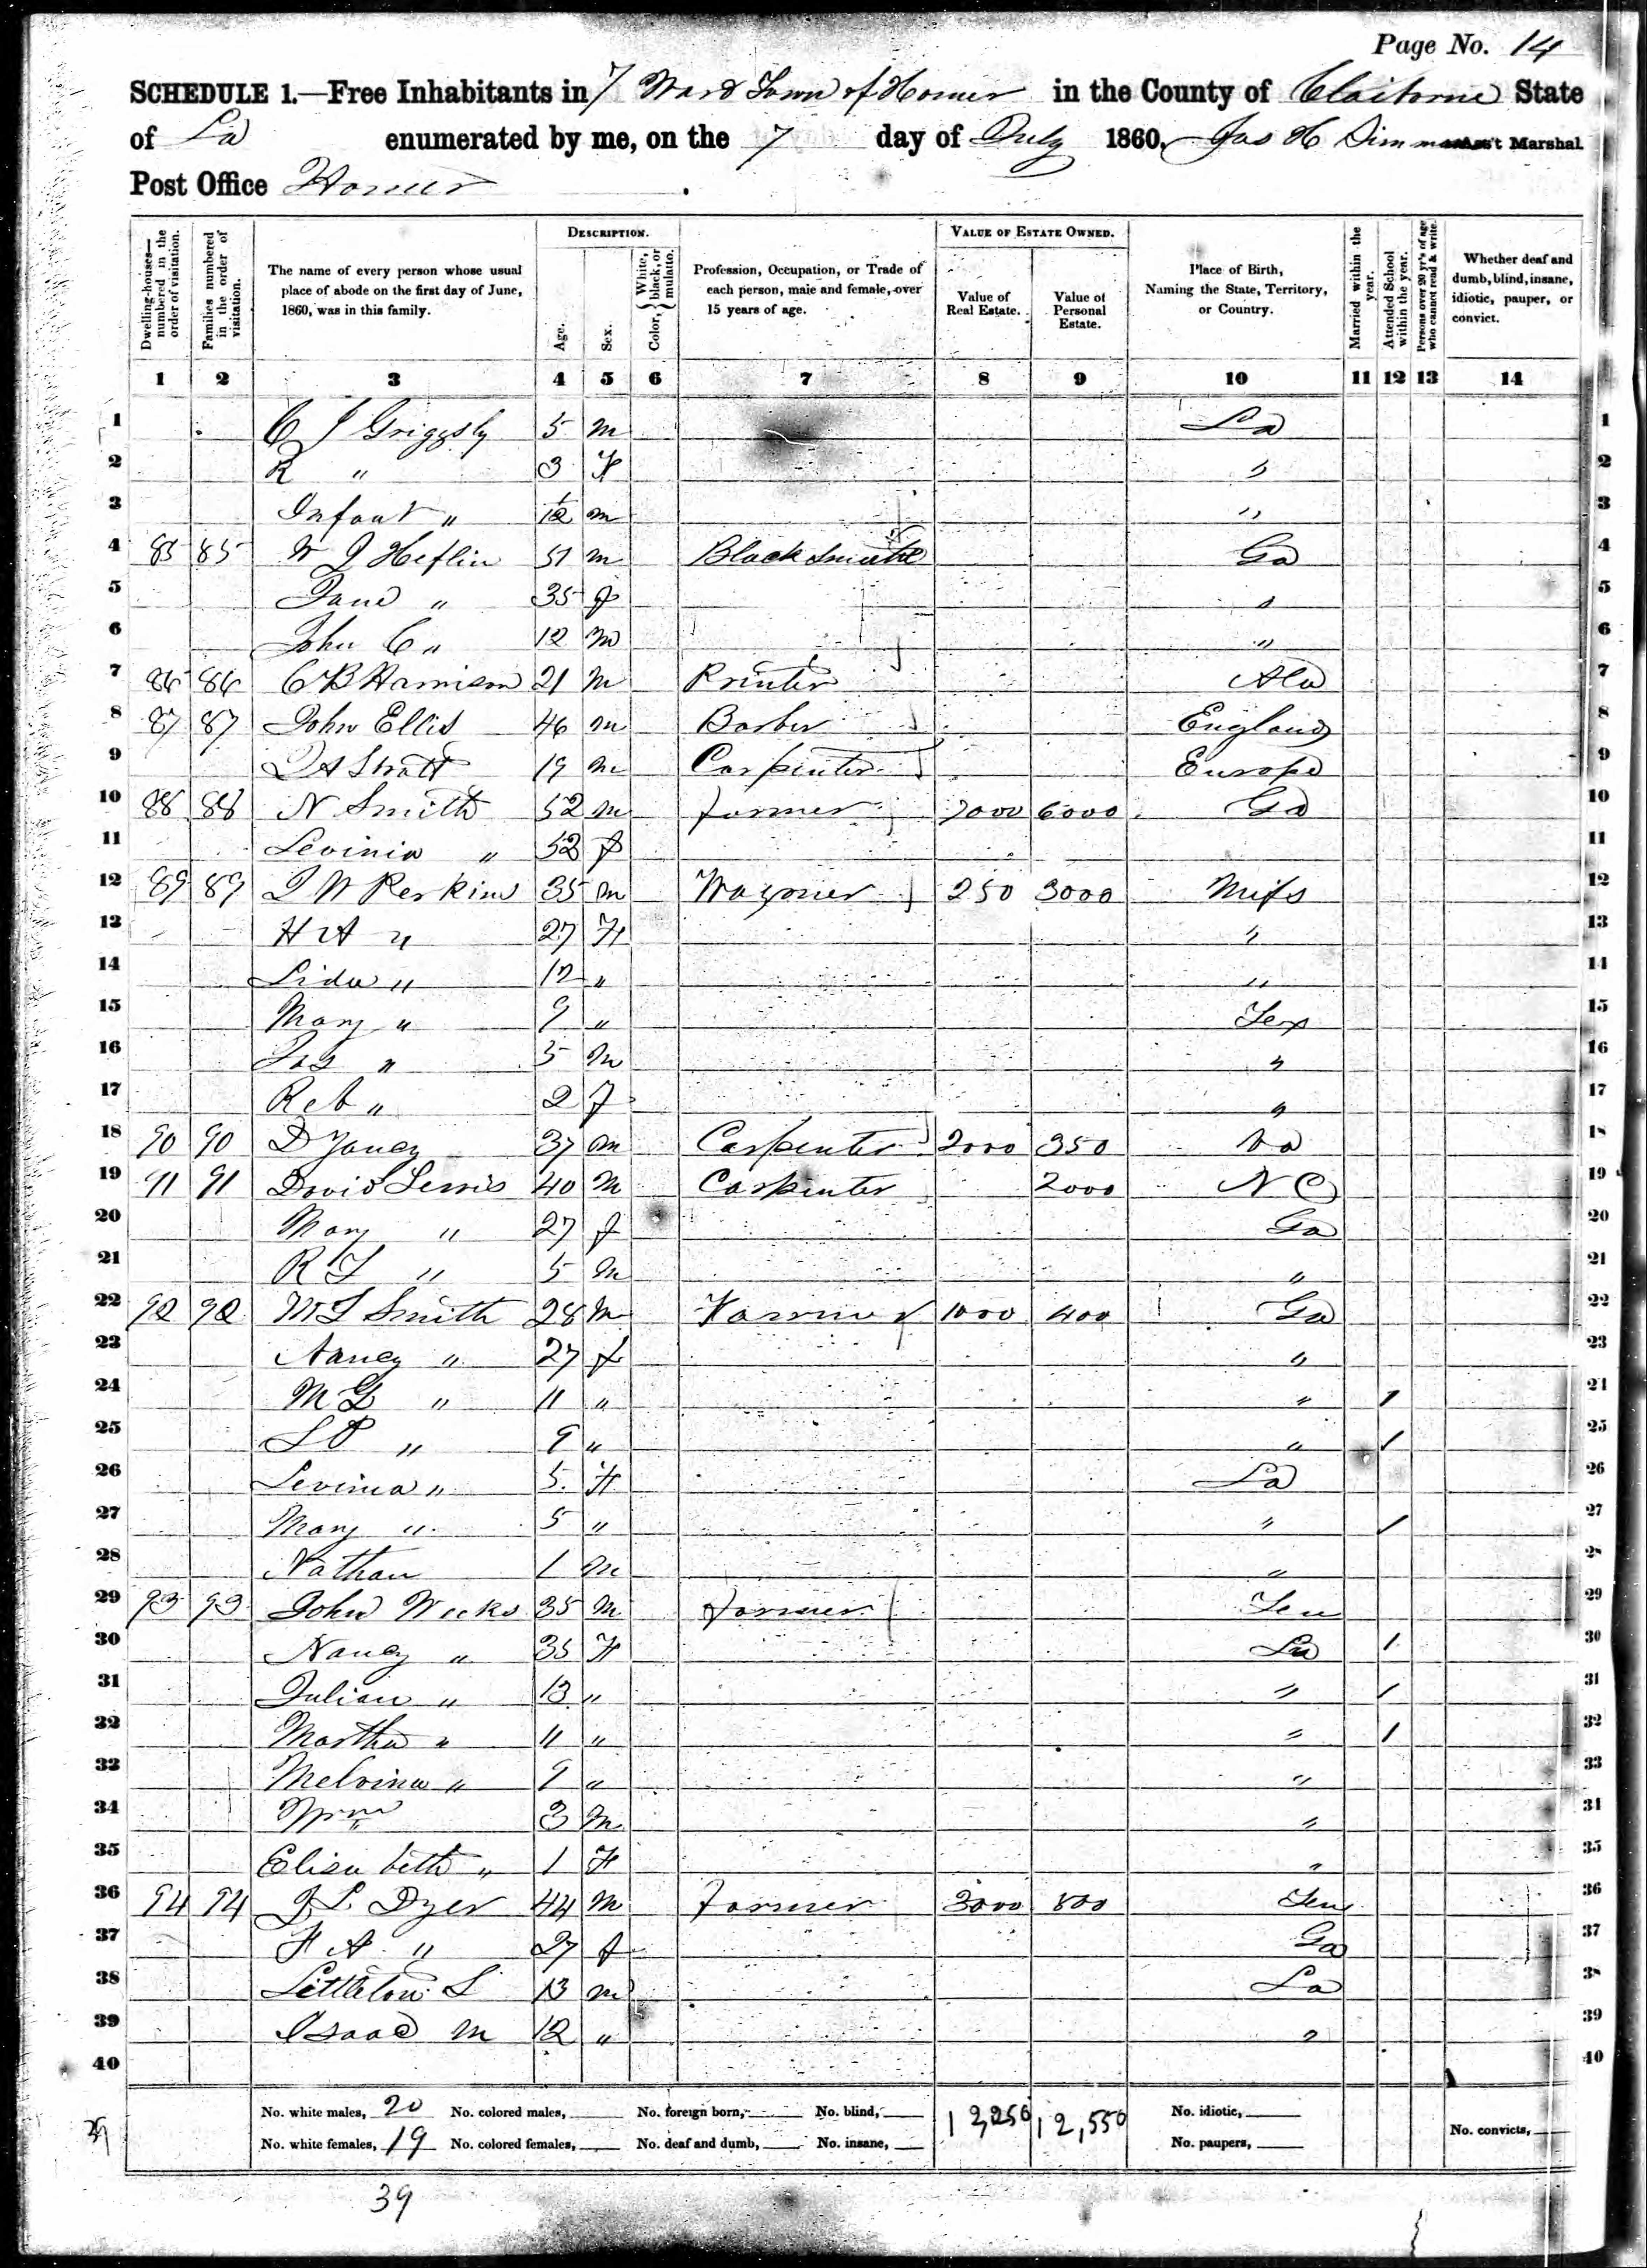 Page No. 14
SCHEDULE 1.—Free Inhabitants in 7 Ward Town of Homer in the County of Claiborne State
of La enumerated by me, on the 7 day of July 1860. Jas H Simm Ass't Marshal.
Post Office Homer
Dwelling-houses—numbered in the order of visitation.
Families numbered in the order of visitation.
The name of every person whose usual place of abode on the first day of June, 1860, was in this family.
DESCRIPTION.
Age.
Sex.
Color, { White, black, or mulatto.
Profession, Occupation, or Trade of each person, male and female, over 15 years of age.
VALUE OF ESTATE OWNED.
Value of Real Estate.
Value of Personal Estate.
Place of Birth, Naming the State, Territory, or Country.
Married within the year.
Attended School within the year.
Persons over 20 yr's of age who cannot read & write.
Whether deaf and dumb, blind, insane, idiotic, pauper, or convict.
1 2 3 4 5 6 7 8 9 10 11 12 13 14
1 C J Griggsly 5 m La 1
2 R " 3 F " 2
3 Infant " 1/12 m " 3
4 85 85 W J Heflin 51 m Blacksmith Ga 4
5 Jane " 35 f " 5
6 John C " 12 m " 6
7 86 86 C B Harrison 21 m Printer Ala 7
8 87 87 John Ellis 46 m Barber England 8
9 Stratt 19 m Carpenter Europe 9
10 88 88 N Smith 52 m farmer 7000 6000 Ga 10
11 Levinia " 52 f 11
12 89 89 J W Perkins 35 m Wagoner 250 3000 Miss 12
13 H A " 27 F " 13
14 Lida " 12 " " 14
15 Mary " 9 " Tex 15
16 Jas " 5 m " 16
17 Reb " 2 f " 17
18 90 90 D Yancy 37 m Carpenter 2000 350 Va 18
19 91 91 David Lewis 40 m Carpenter 2000 N C 19
20 Mary " 27 f Ga 20
21 R L " 5 m " 21
22 92 92 M L Smith 28 m Farmer 1000 400 Ga 22
23 Nancy " 27 f " 23
24 M G " 11 " " / 24
25 L P " 9 " " / 25
26 Levinia " 5 F La 26
27 Mary " 5 " " / 27
28 Nathan 1 m " 28
29 93 93 John Weeks 35 m farmer Ten 29
30 Nancy " 35 F La / 30
31 Julian " 13 " " / 31
32 Martha " 11 " " / 32
33 Melvina " 9 " " 33
34 Wm " 3 m " 34
35 Elizabeth " 1 F " 35
36 94 94 J L Dyer 44 m farmer 3000 800 Ten 36
37 F A " 27 f Ga 37
38 Littleton L 13 m La 38
39 Isaac M 12 " " 39
40 40
No. white males, 20 No. colored males, No. foreign born, No. blind, 13,250 12,550 No. idiotic,
39 No. white females, 19 No. colored females, No. deaf and dumb, No. insane, No. paupers, No. convicts,
39